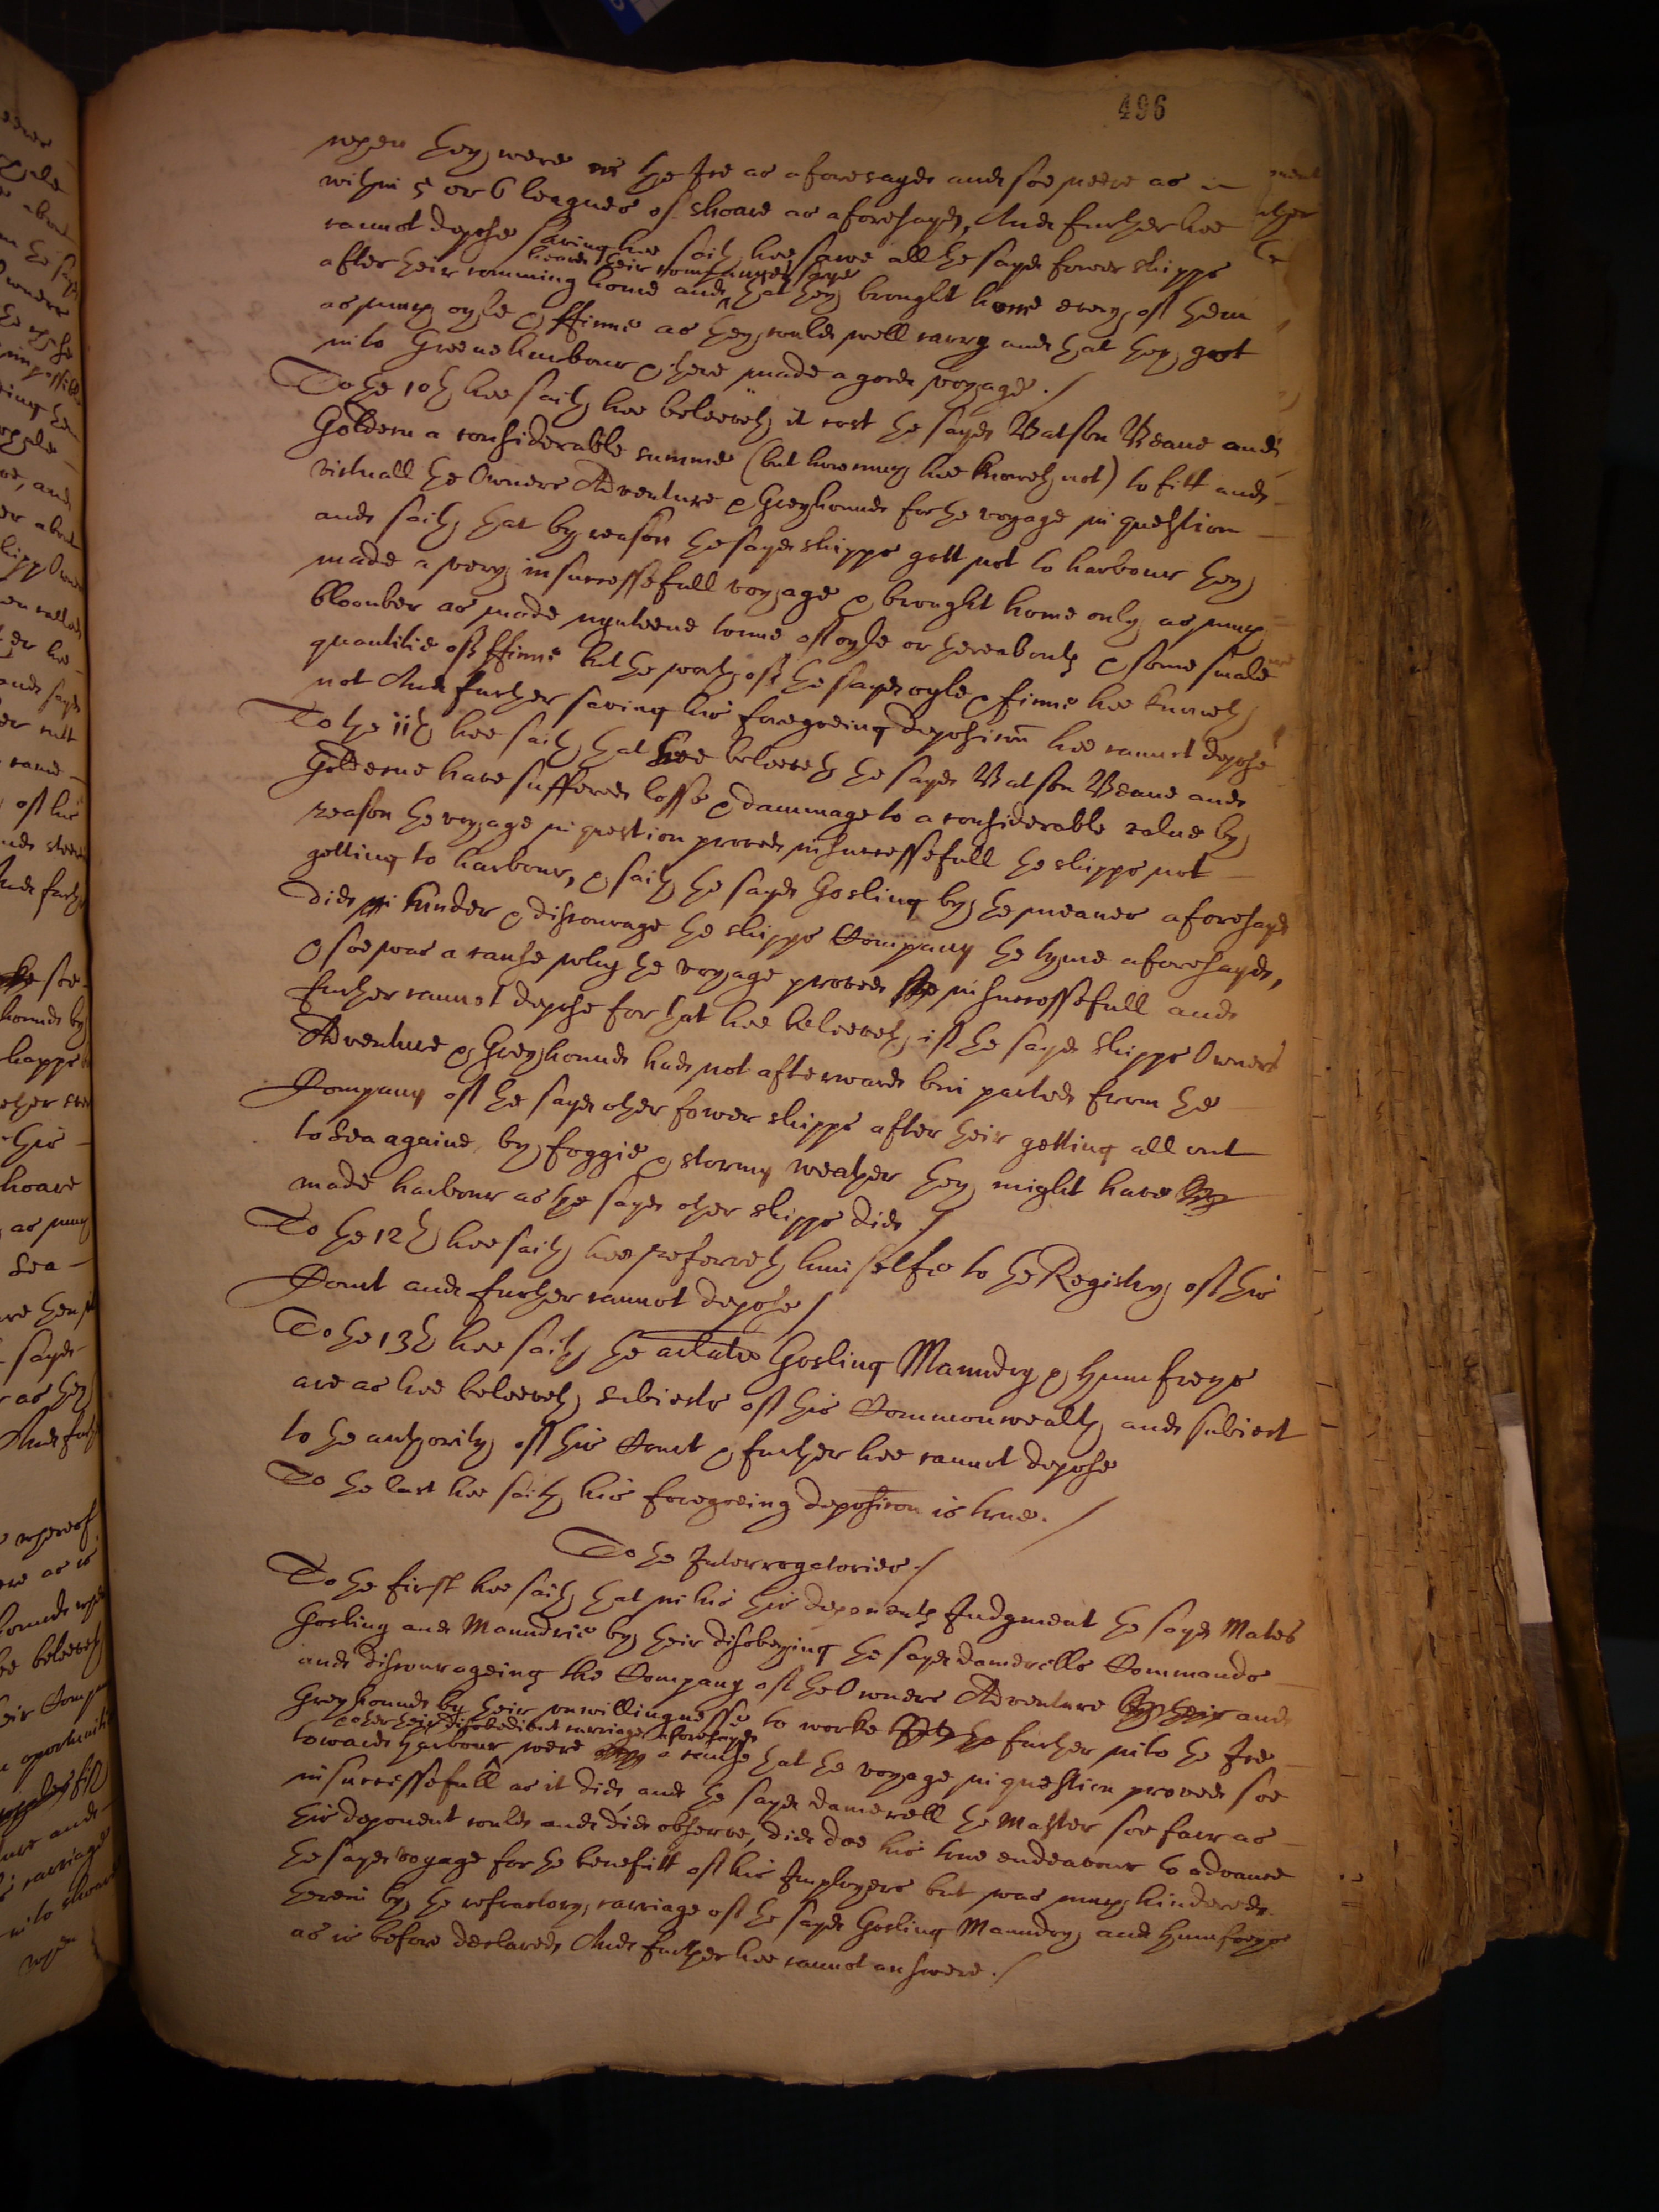 496
when they were in the Ice as aforesayd and soe neere as in
within 5 or 6 leagues of shoare as aforesayd, And further hee
cannot depose saving hee saith hee sawe all the sayd fower shipps
after their comming home and heard their companyes saye that they brought home every of them
as much oyle & ffinns as they could well carry and that they gott
into Greeneharbour & there made a good voyage./
To the 10th hee saith hee beleeveth it cost the sayd Batson Beane and
Goldern a considerable summe (but how much hee knoweth not) to fitt and
victuall the Owners Adventure & Greyhound for the voyage in question
and saith that by reason the sayd shipps gott not to harbour they
made a very insuccessefull voyage & brought home only as much
bloonber as made nynteene tonne of oyle or thereabouts & some smale
quantitie of ffinns but the worth of the sayd oyle & finns hee knoweth
not And further saving his foregoeing deposicon hee cannot depose
To the 11th hee saith that hee beleeveth the sayd Batson Beane and
Golderne have suffered losse & dammage to a considerable value by
reason the voyage in question proved insuccessefull the shipps not
getting to harbour, & saith the sayd Gosling by the meanes aforesayd
did hinder & discourage the shipps Company the tyme aforesayd,
& soe was a cause why the voyage proved insuccessefull and
further cannot depose for that hee beleeveth if the sayd shipps Owners
Adventure & Greyhound had not afterwards bin parted from the
Company of the sayd other fower shipps after their getting all out
to Sea againe by foggie & stormy weather they might have
made harbour as the sayd other shipps did ./
To the 12th hee saith hee referreth himselfe to the Registry of this
Court and further cannot depose /
To the 13th hee saith the arlate Gosling Manndry & Humfreys
are as hee beleeveth subiects of this Commonwealth and subiect
to the authority of this Court & further hee cannot depose
To the last hee saith his foregoeing deposicon is true./
To the Interrogatories./
To the first hee saith that in his this deponents Iudgment the sayd Mates
Gosling and Manndrie by their disobeying the sayd Damerells Commands
and discourageing the Company of the Owners Adventure and
Greyhound by their unwillingnesse to worke further into the Ice
towards harbour & other their disobedient carriage aforesayd were a cause that the voyage in question proved soe
insuccessefull as it did, and the sayd Damerell the Master soe farr as
this deponent could and did observe, did doe his true endeavour to advance
the sayd voyage for the benefitt of his Imployers but was much hindered
therein by the refractory carriage of the sayd Gosling Manndry and Humfreys
as is before declared, And further hee cannot answere./